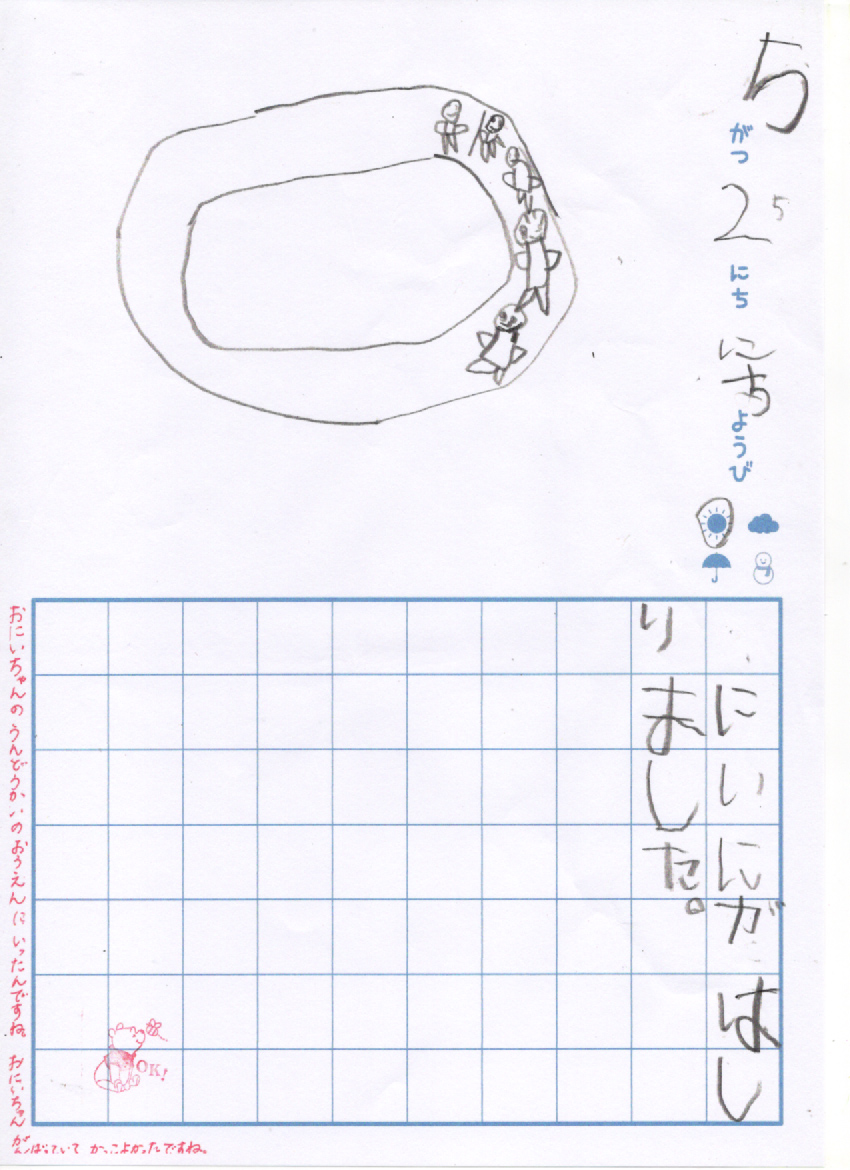 5がつ25にちにちようび
にいにがはし
りました。
おにいちゃんのうんどうかいのおうえんにいったんですね。おにいちゃんが
んばっていてかっこよかったですね。
OK!